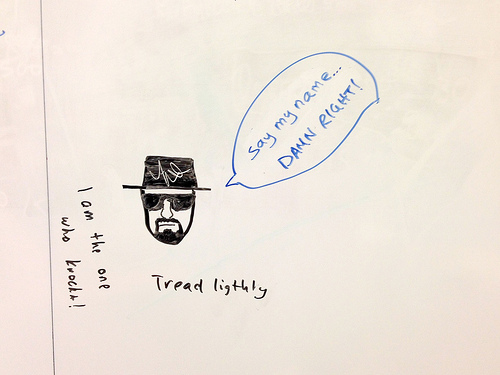 Say my name...
DAMN RIGHT!
I am the one
who knocks!
Tread ligthly